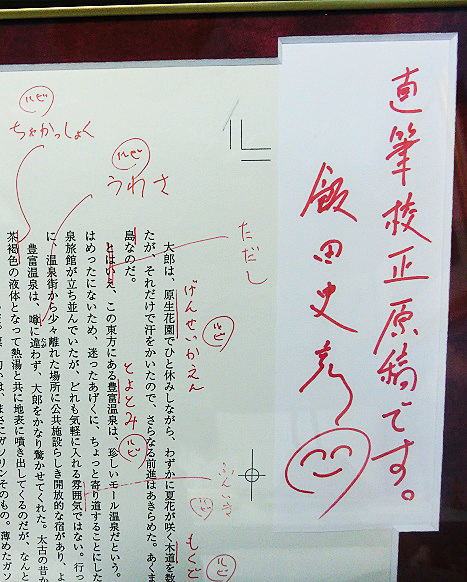 直筆校正原稿です。
飯田史彦
大郎は、原生花園でひと休みしながら、わずかに夏花が咲く木道を数
たが、それだけで汗をかいたので、さらなる前進はあきらめた。あくま
島なのだ。
とはいえ、この東方にある豊富温泉は、珍しいモール温泉だという。
はめったにないため、迷ったあげくに、ちょっと寄り道することにした
泉旅館が立ち並んでいたが、どれも気軽に入れる雰囲気ではない。行っ
に、温泉街から少々離れた場所に公共施設らしき開放的な宿があり、よ
豊富温泉は、噂に違わず、大郎をかなり驚かせてくれた。太古の昔か
茶褐色の液体となって熱湯と共に地表に噴き出してくるのだが、なんと
は、まさにガソリンそのもの。薄めたガソ
げんせいかえん
ルビ
もくど
ルビ
ただし
とよとみ
ルビ
ふんいき
ルビ
うわさ
ルビ
ちゃかっしょく
ルビ